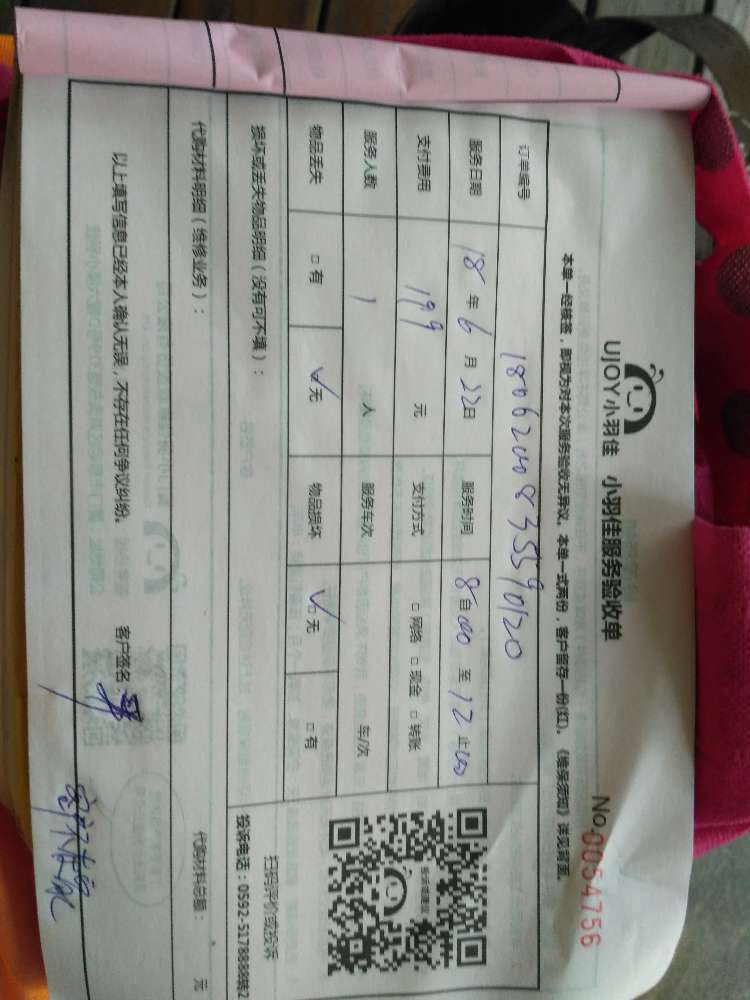 UJOY小羽佳 小羽佳服务验收单 No.0054756
本单一经核签，即视为对本次服务验收无异议。本单一式两份，客户留存一份(红)。《维保须知》详见背面。
订单编号
服务日期 18 年 6 月 22 日 服务时间 8 自 00 至 12 止 00
支付费用 199 元 支付方式 □ 网络 □ 现金 □ 转账
服务人数 1 人 服务车次 车/次
物品丢失 □ 有 √ 无 物品损坏 √□ 无 □ 有
损坏或丢失物品明细（没有可不填）：
投诉或建议
扫码评价或投诉
投诉电话：0592-5178888转2
代购材料明细（维修业务）： 代购材料总额： 元
以上填写信息已经本人确认无误，不存在任何争议纠纷。 客户签名：